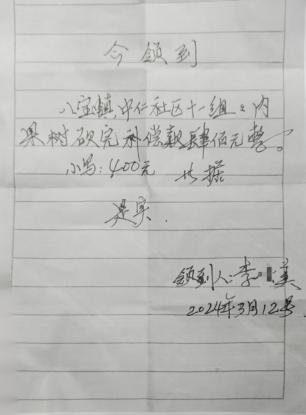 今领到
八宝镇中仁社区十一组 内
果树砍完补偿款肆佰元整。
小写：400元 此据
是实.
领到人：李 美
2024年3月12号